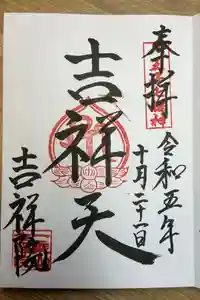 奉拝
令和五年
十月二十一日
吉祥天
吉祥院